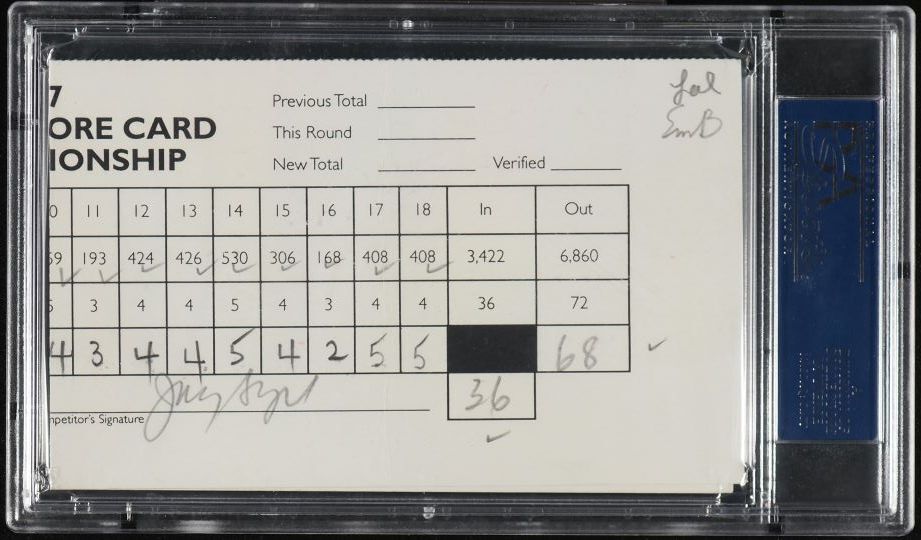 7
ORE CARD
IONSHIP
Previous Total
This Round
New Total Verified
0 11 12 13 14 15 16 17 18 In Out
59 193 424 426 530 306 168 408 408 3,422 6,860
5 3 4 4 5 4 3 4 4 36 72
4 3 4 4 5 4 2 5 5 68
36
mpetitor's Signature